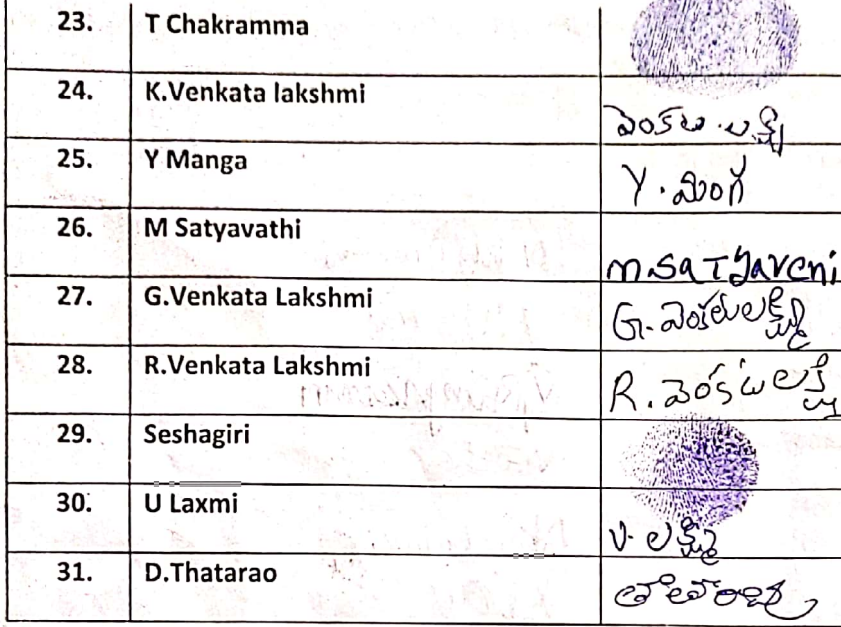 23. T Chakramma
24. K.Venkata lakshmi వెంకట లక్ష్మి
25. Y Manga Y. మంగ
26. M Satyavathi M.SaTyaveni
27. G.Venkata Lakshmi G. వెంకటలక్ష్మి
28. R.Venkata Lakshmi R. వెంకట లక్ష్మి
29. Seshagiri
30. U Laxmi U. లక్ష్మి
31. D.Thatarao